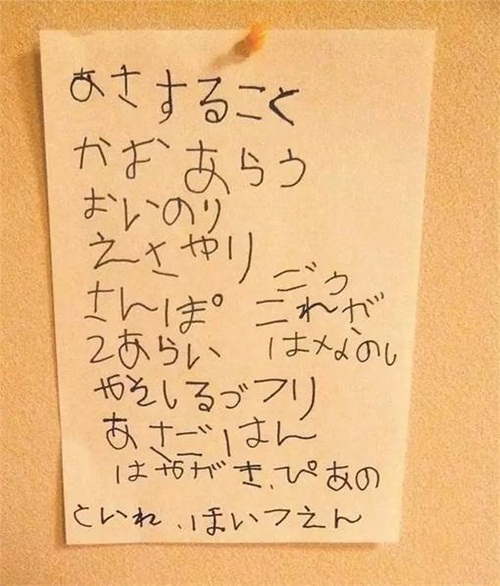 あさすること
かお あらう
おいのり
えさやり
ごう
さんぽ これが
2あらい
あさごはん
はやがき、ぴあの
といれ、ほいつえん